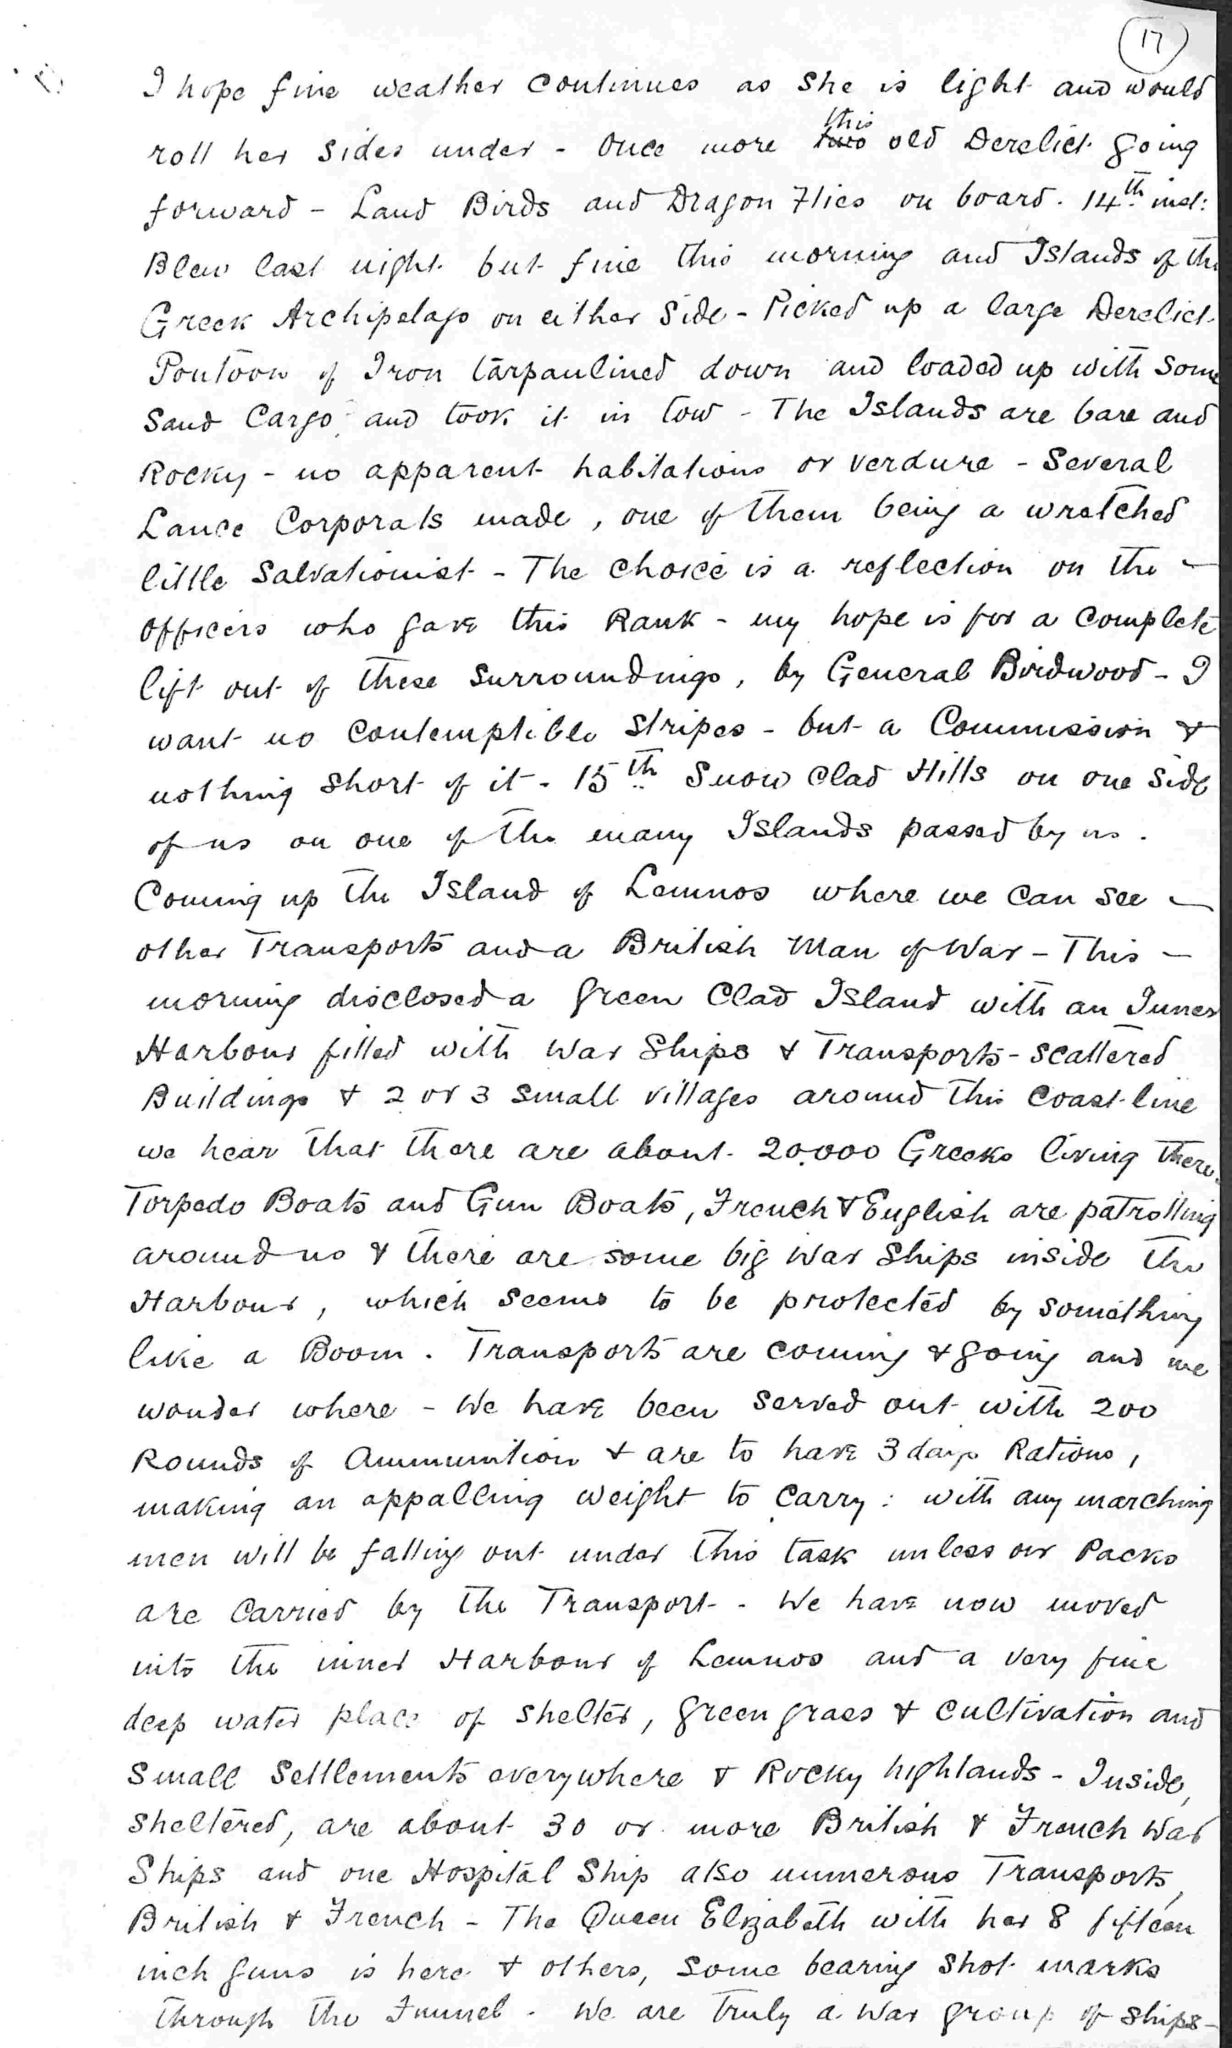 17
I hope fine weather continues as she is light and would
roll her sides under - once more this old Derelict going
forward - Land Birds and Dragon Flies on board. 14th inst:
Blew last night but fine this morning and Islands of the
Greek Archipelago on either side - Picked up a large Derelict
Pontoon of Iron tarpaulined down and loaded up with some
Sand Cargo, and took it in tow - The Islands are bare and
Rocky - no apparent habitations or verdure - Several
Lance Corporals made, one of them being a wretched
little Salvationist - The choice is a reflection on the -
officers who gave this Rank - my hope is for a complete
lift out of these surroundings, by General Birdwood - I
want no contemptible stripes - but a Commission &
nothing short of it - 15th Snow Clad Hills on one side
of us on one of the many Islands passed by us.
Coming up the Island of Lemnos where we can see -
other Transports and a British Man of War - This -
morning disclosed a green Clad Island with an Inner
Harbour filled with War Ships & Transports - scattered
Buildings & 2 or 3 small villages around this coast line
we hear that there are about 20,000 Greeks living there.
Torpedo Boats and Gun Boats, French & English are patrolling
around us & there are some big War Ships inside the
Harbour, which seems to be protected by something
like a Boom. Transports are coming & going and we
wonder where - We have been served out with 200
Rounds of Ammunition & are to have 3 days Rations,
making an appalling weight to carry: with any marching
men will be falling out under this task unless our Packs
are carried by the Transport - We have now moved
into the inner Harbour of Lemnos and a very fine
deep water place of shelter, green grass & cultivation and
small settlements everywhere & Rocky highlands - Inside,
sheltered, are about 30 or more British & French War
Ships and one Hospital Ship also numerous Transports,
British & French - The Queen Elizabeth with her 8 fifteen
inch guns is here & others, some bearing shot marks
through the Funnel - We are truly a War group of ships -